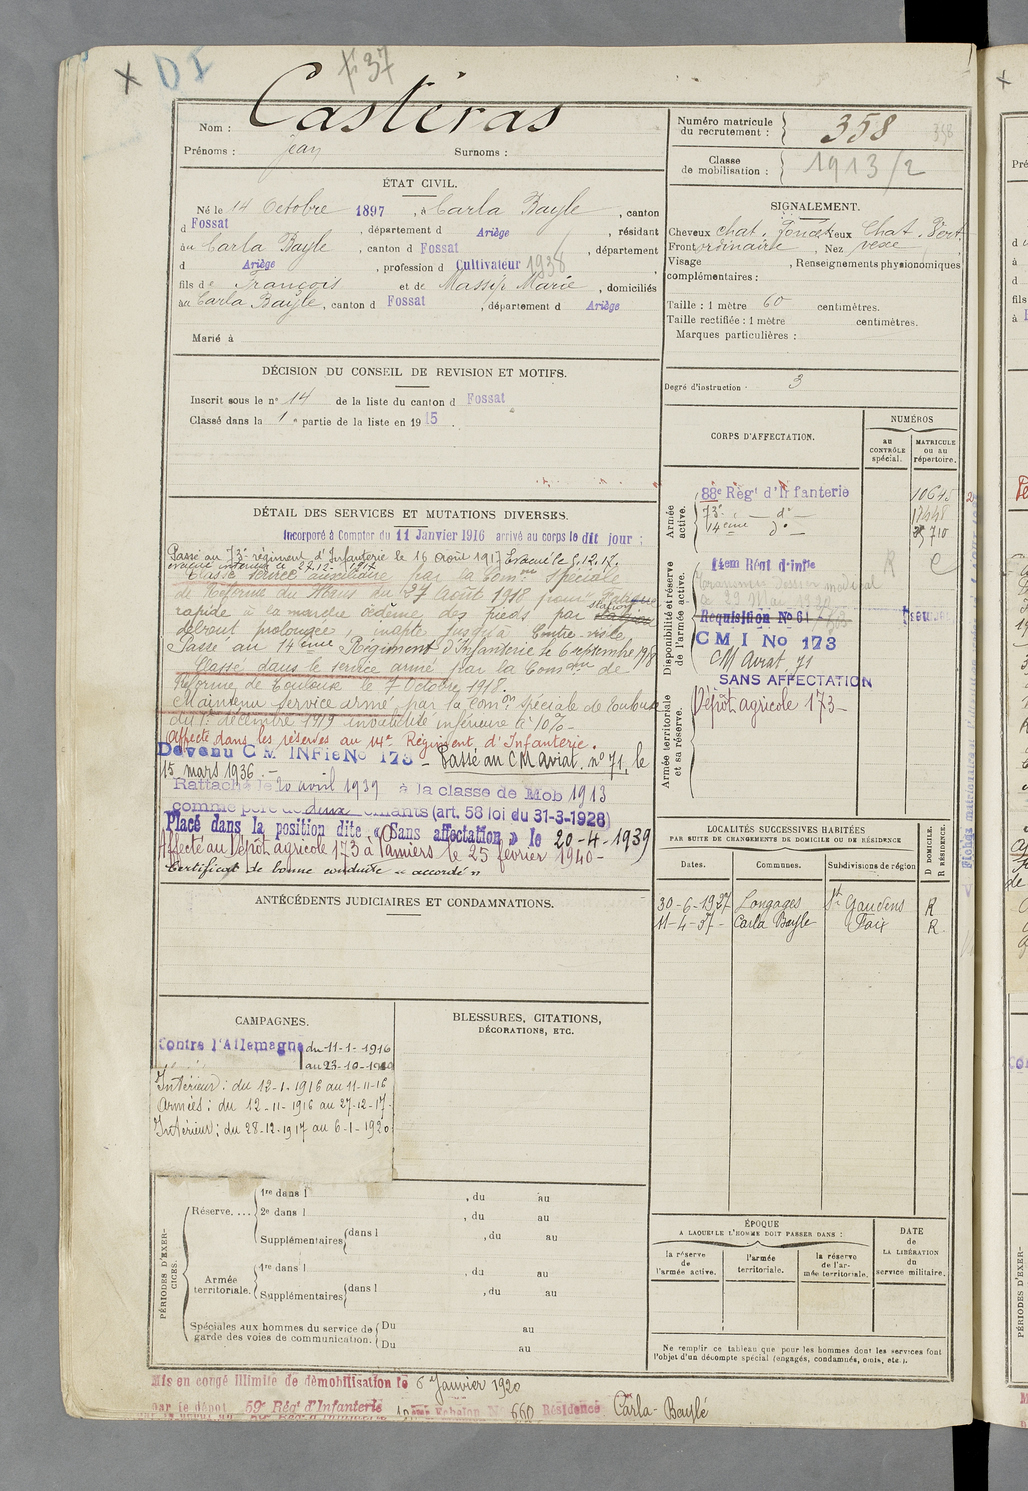 X D I
37
Nom : Castéras
Prénoms : Jean Surnoms :
Numéro matricule du recrutement : 358
358
Classe de mobilisation : 1913/2
ÉTAT CIVIL.
Né le 14 Octobre 1897, à Carla Bayle, canton
d Fossat, département d Ariège, résidant
au Carla Bayle, canton d Fossat, département
d Ariège, profession d Cultivateur 1938
fils de François et de Massip Marie, domiciliés
au Carla Bayle, canton d Fossat, département d Ariège
Marié à
SIGNALEMENT.
Cheveux chat. foncé Yeux Chat. Vert.
Front ordinaire, Nez vexe
Visage , Renseignements physionomiques
complémentaires :
Taille : 1 mètre 60 centimètres.
Taille rectifiée : 1 mètre centimètres.
Marques particulières :
Degré d'instruction : 3
DÉCISION DU CONSEIL DE REVISION ET MOTIFS.
Inscrit sous le n° 14 de la liste du canton d Fossat
Classé dans la 1 e partie de la liste en 1915.
CORPS D'AFFECTATION.
NUMÉROS
au CONTRÔLE spécial.
MATRICULE ou au répertoire.
Armée active.
88e Régt d'Infanterie 10645
73e — do —
14ème do —
Disponibilité et réserve de l'armée active.
14em Régt d'Infie
Réquisition No 61
C M I No 173
CM Aviat. 71
SANS AFFECTATION
Armée territoriale et sa réserve.
Dépôt agricole 173 —
R
DÉTAIL DES SERVICES ET MUTATIONS DIVERSES.
Incorporé à Compter du 11 Janvier 1916 arrivé au corps le dit jour ;
Passé au 73e régiment d'Infanterie le 16 août 1917 Evacué le 5.12.17.
Evacué intérieur le 27-12-1917
Classé service auxiliaire par la Comon Spéciale
de Réforme du Mans du 27 Août 1918 pour Fatigue
rapide à la marche œdème des pieds par station
debout prolongée, inapte jusqu'à Contre-visite
Passé au 14ème Régiment d'Infanterie le 6 septembre 1918
Classé dans le service armé par la Comon de
Réforme de Toulouse le 7 Octobre 1918.
Maintenu service armé par la Comon spéciale de Toulouse
du 1er décembre 1919 invalidité inférieure à 10% —
Affecté dans les réserves au 14e Régiment d'Infanterie.
Devenu C M INFie No 173 — Passé au CM aviat. n° 71, le
15 mars 1936. —
Rattaché le 20 avril 1939 à la classe de Mob 1913
comme père de deux enfants (art. 58 loi du 31-3-1928)
Placé dans la position dite « Sans affectation » le 20-4-1939
Affecté au Dépôt agricole 173 à Pamiers le 25 février 1940 —
Certificat de bonne conduite « accordé »
ANTÉCÉDENTS JUDICIAIRES ET CONDAMNATIONS.
LOCALITÉS SUCCESSIVES HABITÉES
PAR SUITE DE CHANGEMENTS DE DOMICILE OU DE RÉSIDENCE
Dates. Communes. Subdivisions de région
D DOMICILE. R RÉSIDENCE.
30-6-1927 Longages St Gaudens R
11-4-37 — Carla Bayle Foix R
CAMPAGNES.
Contre l'Allemagne du 11-1-1916
au 23-10-1919
Intérieur : du 12-1-1916 au 11-11-16
Armées : du 12-11-1916 au 27-12-17.
Intérieur ; du 28-12-1917 au 6-1-1920
BLESSURES, CITATIONS,
DÉCORATIONS, ETC.
PÉRIODES D'EXERCICES.
Réserve. ...
1re dans l , du au
2e dans l , du au
Supplémentaires dans l , du au
Armée territoriale.
1re dans l , du au
Supplémentaires dans l , du au
Spéciales aux hommes du service de garde des voies de communication.
Du au
Du au
ÉPOQUE
A LAQUELLE L'HOMME DOIT PASSER DANS :
la réserve de l'armée active.
l'armée territoriale.
la réserve de l'armée territoriale.
DATE de LA LIBÉRATION du service militaire.
Ne remplir ce tableau que pour les hommes dont les services font
l'objet d'un décompte spécial (engagés, condamnés, omis, etc.).
Mis en congé illimité de démobilisation le 6 Janvier 1920
par le dépôt 59e Régt d'Infanterie Echelon N° 660 Résidence Carla-Baylé